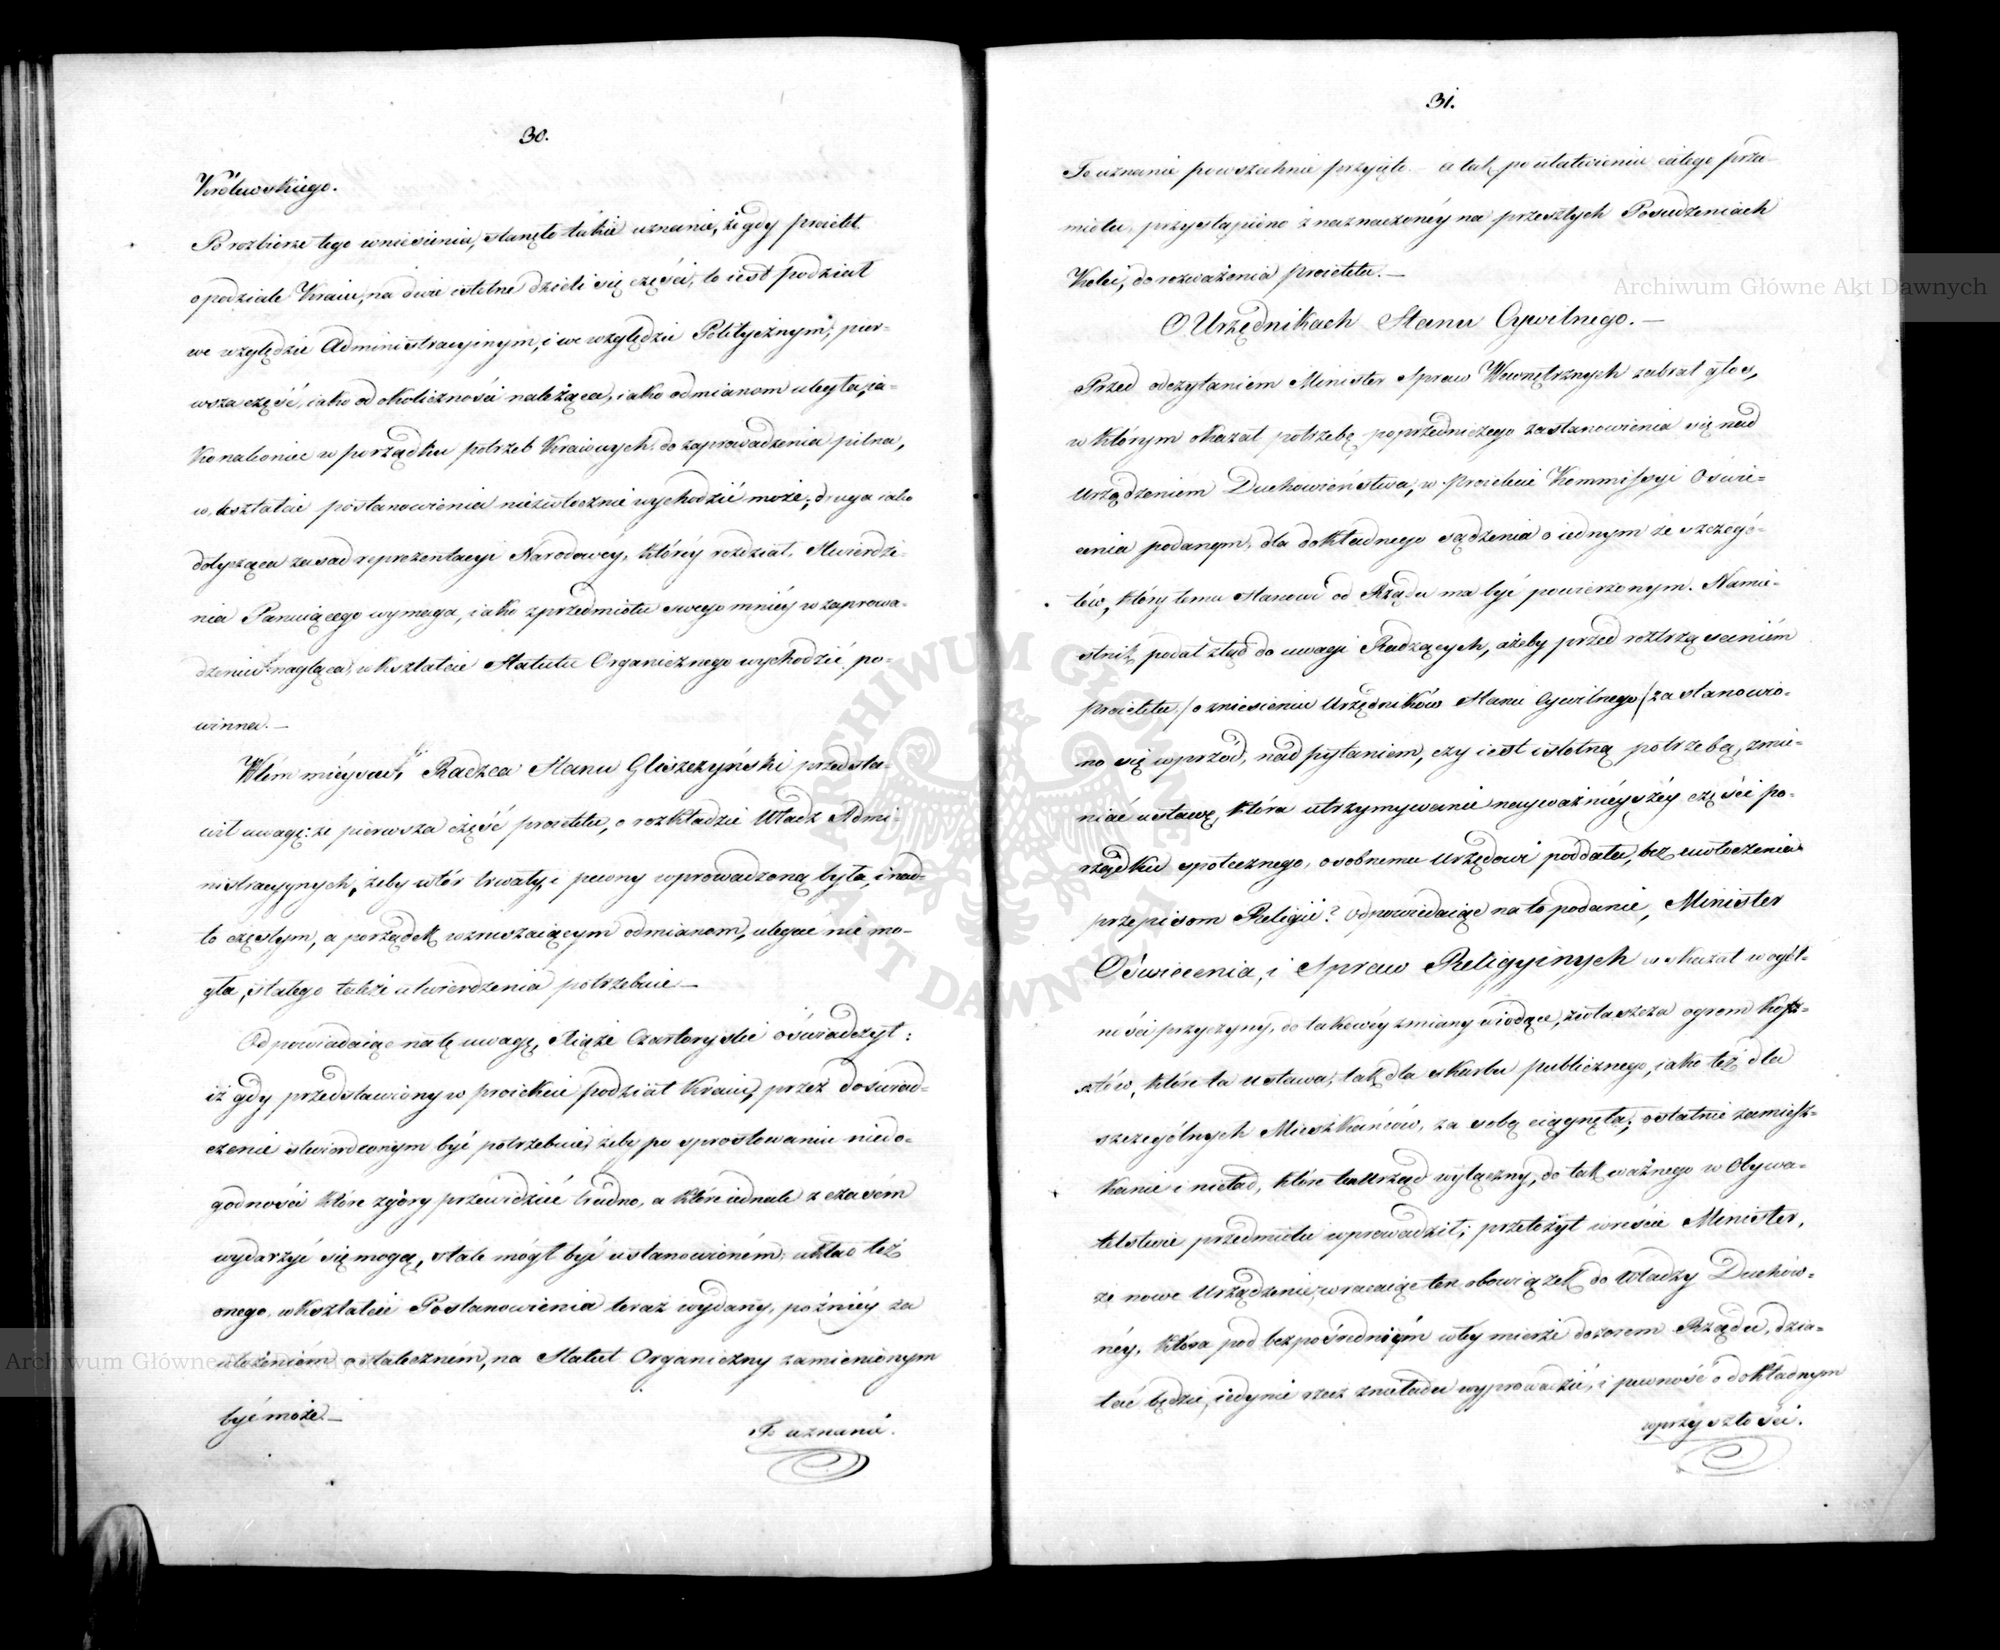 30.
Królewskiego.
Po rozbiorze tego wniesienia, stanęło takie uznanie, że gdy proiekt
o podziale Kraiu, na dwie istotne dzieli się części, to iest podział
we względzie Administracyinym, i we względzie Politycznym; pier-
wsza część, iako od okoliczności należąca, iako odmianom uległa, ia-
ko nakoniec w porządku potrzeb Kraiowych do zaprowadzenia pilna,
w kształcie postanowienia niezwłocznie wychodzić może; druga iako
dotycząca zasad reprezentacyi Narodowéy, któréy rozdział, stwierdze-
nia Panuiącego wymaga, iako z przedmiotu swego mniéy w zaprowa-
dzeniu nagląca, w kształcie Statutu Organicznego wychodzić po-
winna.—
W tém mieyscu, Radzca Stanu Gliszczyński przedsta-
wił uwagę: że pierwsza część proiektu, o rozkładzie Władz Admi-
nistracyynych, żeby utór trwały, i pewny wprowadzoną była, i nad-
to częstym, a porządek wzruszaiącym odmianom, ulegać nie mo-
gła, stałego także utwierdzenia potrzebuie—
Odpowiadaiąc na tę uwagę, Xiąże Czartoryski oświadczył:
iż gdy przedstawiony w proiekcie podział Kraiu, przez doświad-
czenie stwierdzonym być potrzebuie, żeby po sprostowaniu niedo-
godności które zgóry przewidzić trudno, a które iednak z czasem
wydarzyć się mogą, stale mógł być ustanowioném; układ też
onego, w kształcie Postanowienia teraz wydany, późniéy za
ułożeniem ostateczném, na Statut Organiczny zamienionym
być może.—
To uznanie.
31.
To uznanie powszechnie przyięto. a tak po ułatwieniu całego prze-
miotu, przystąpiono z naznaczonéy na przeszłych Posiedzeniach
Kolei, do rozważenia proiektu.—
O Urzędnikach Stanu Cywilnego.—
Przed odczytaniem Minister Spraw Wewnętrznych zabrał głos,
w którym okazał potrzebę poprzedniczego zastanowienia się nad
Urządzeniem Duchowieństwa, w proiekcie Kommissyi Oświe-
cenia podanym, dla dokładnego sądzenia o iednym ze szczegó-
łów, który temu Stanowi od Rządu ma być powierzonym. Namie-
stnik podał ztąd do uwagi Radzących, ażeby przed roztrząsaniem
proiektu /o zniesieniu Urzędników Stanu Cywilnego/ zastanowio-
no się wprzód, nad pytaniem, czy iest istotną potrzebą, zmie-
niać ustawę, która utrzymywanie nayważnieyszéy części po-
rządku społecznego, osobnemu Urzędowi poddała, bez uwłoczenia
przepisom Religii? Odpowiedaiąc na to podanie, Minister
Oświecenia, i Spraw Religyinych wskazał w ogól-
ności przyczyny, do takowéy zmiany wiodące, zwłaszcza ogrom kosz-
tów, które ta ustawa, tak dla skarbu publicznego, iako też dla
szczególnych Mieszkańców, za sobą ciągnęła; ostatnie zamiesz-
kanie i nieład, które ten Urząd wyłączny, do tak ważnego w Obywa-
telstwie przedmiotu wprowadził; przełożył wreście Minister,
że nowe Urządzenie, zwracaiąc ten obowiązek do Władzy Duchów-
néy, która pod bezpośrednim w téy mierze dozorem Rządu, dzia-
łać będzie, iedynie rzecz z nieładu wyprowadzić, i pewność o dokładnym
w przyszłości.
Archiwum Główne Akt Dawnych
Archiwum Główne Akt Dawnych
ARCHIWUM GŁÓWNE AKT DAWNYCH